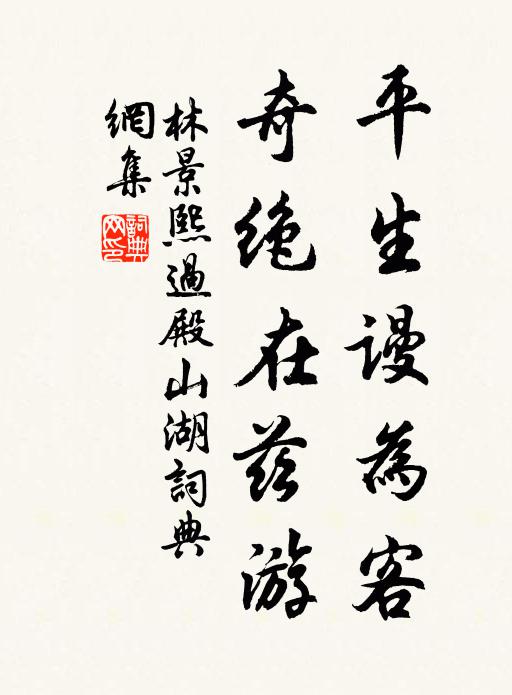 平生謾為客
奇绝在茲游
林景熙過殿山湖詞典
網集
詞典
网印